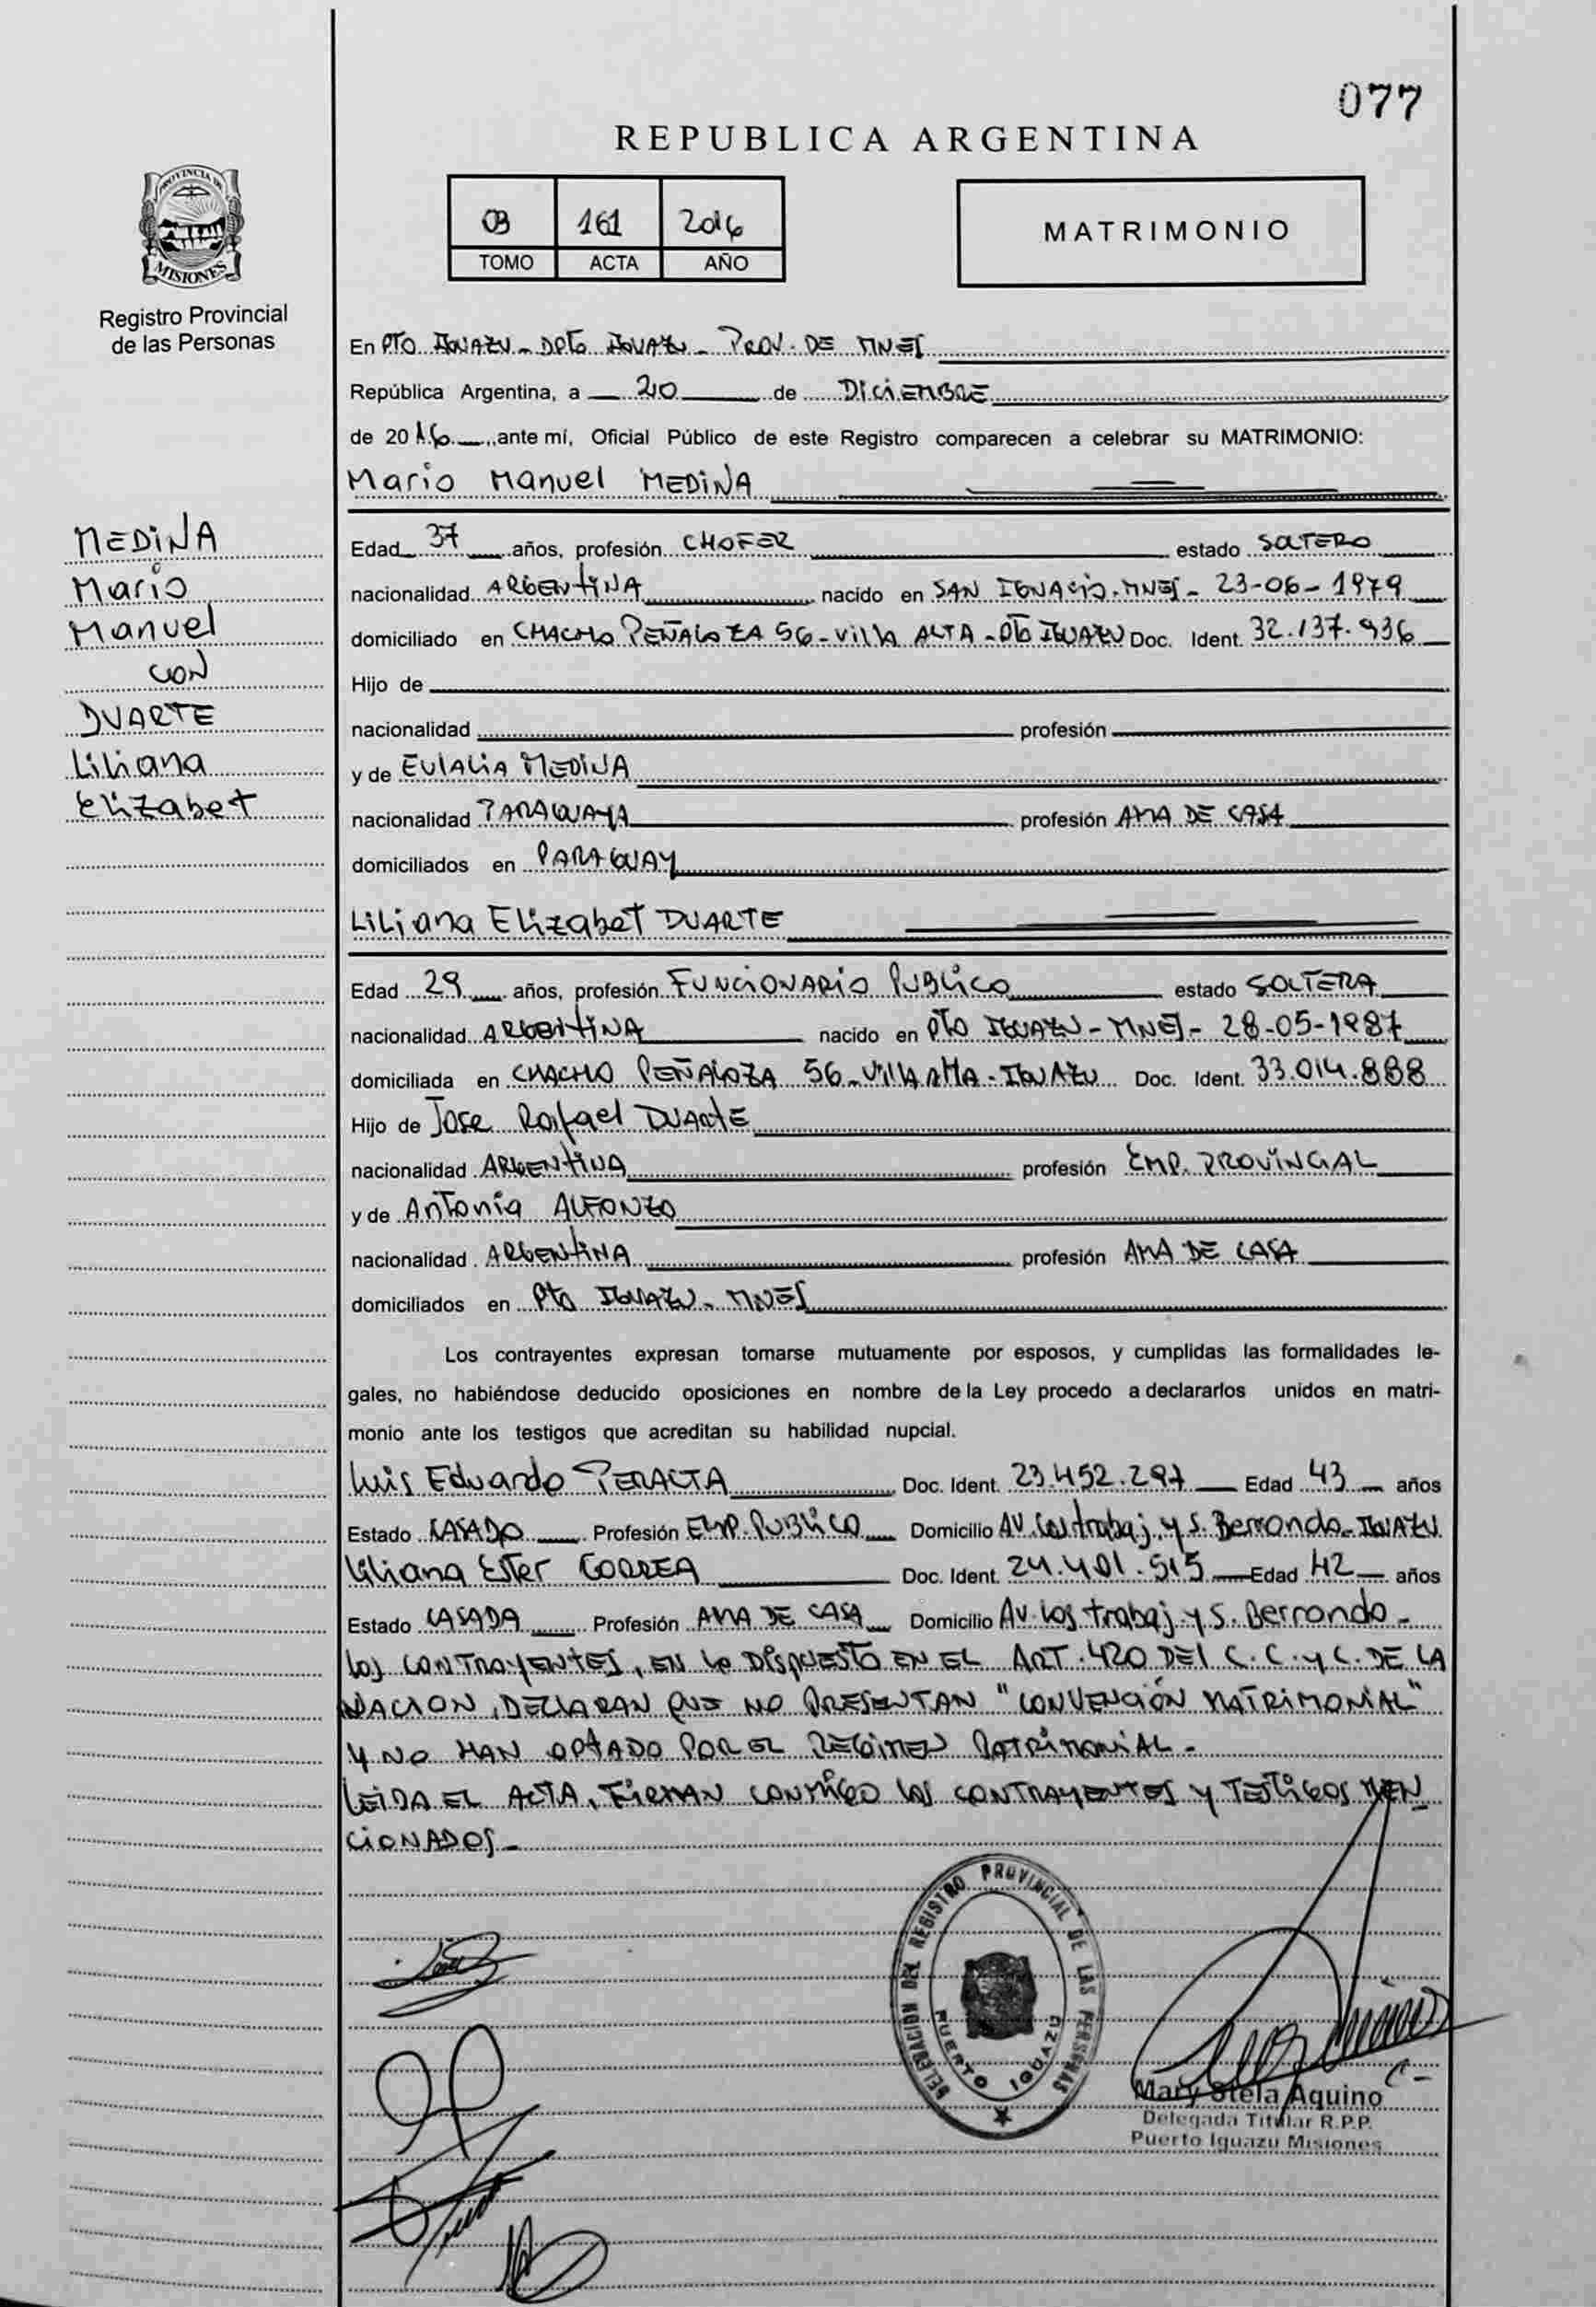 077
REPUBLICA ARGENTINA
PROVINCIA DE
MISIONES
Registro Provincial
de las Personas
03 161 2016
TOMO ACTA AÑO
MATRIMONIO
En PTO IGUAZU - DPTO IGUAZU - PROV. DE MNES
República Argentina, a 20 de DICIEMBRE
de 2016 ante mí, Oficial Público de este Registro comparecen a celebrar su MATRIMONIO:
Mario Manuel MEDINA
MEDINA
Mario
Manuel
CON
DUARTE
Liliana
Elizabet
Edad 37 años, profesión CHOFER estado SOLTERO
nacionalidad ARGENTINA nacido en SAN IGNACIO - MNES - 23-06-1979
domiciliado en CHACHO PEÑALOZA 56 - Villa ALTA - PTO IGUAZU Doc. Ident. 32.137.936
Hijo de
nacionalidad profesión
y de EULALIA MEDINA
nacionalidad PARAGUAYA profesión AMA DE CASA
domiciliados en PARAGUAY
Liliana Elizabet DUARTE
Edad 29 años, profesión FUNCIONARIO PUBLICO estado SOLTERA
nacionalidad ARGENTINA nacido en PTO IGUAZU - MNES - 28-05-1987
domiciliada en CHACHO PEÑALOZA 56 - Villa ALTA - IGUAZU Doc. Ident. 33.014.888
Hijo de Jose Rafael DUARTE
nacionalidad ARGENTINA profesión EMP. PROVINCIAL
y de Antonia ALFONZO
nacionalidad ARGENTINA profesión AMA DE CASA
domiciliados en PTO IGUAZU - MNES
Los contrayentes expresan tomarse mutuamente por esposos, y cumplidas las formalidades le-
gales, no habiéndose deducido oposiciones en nombre de la Ley procedo a declararlos unidos en matri-
monio ante los testigos que acreditan su habilidad nupcial.
Luis Eduardo PERALTA Doc. Ident. 23.452.297 Edad 43 años
Estado CASADO Profesión EMP. PUBLICO Domicilio AV. Los trabaj. y S. Berrondo - IGUAZU
Liliana Ester CORREA Doc. Ident. 24.401.515 Edad 42 años
Estado CASADA Profesión AMA DE CASA Domicilio Av. Los trabaj. y S. Berrondo -
LOS CONTRAYENTES, EN LO DISPUESTO EN EL ART. 420 DEL C.C. y C. DE LA
NACION, DECLARAN QUE NO PRESENTAN "CONVENCIÓN MATRIMONIAL"
Y NO HAN OPTADO POR EL REGIMEN PATRIMONIAL -
LEIDA EL ACTA, FIRMAN CONMIGO LOS CONTRAYENTES Y TESTIGOS MEN
CIONADOS -
DELEGACION DEL REGISTRO PROVINCIAL DE LAS PERSONAS
PUERTO IGUAZU
Mary Stela Aquino
Delegada Titular R.P.P.
Puerto Iguazu Misiones